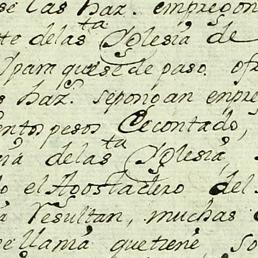 se las haz.ˢ empeñon
te de la Sta Yglesia de
para que si de paso ofr
s haz.ˢ se pongan enpre
ento pesos de contado,
na de la Sta Yglesia,
do el Apostadero del
a resultan, muchas
se llama que tiene, so